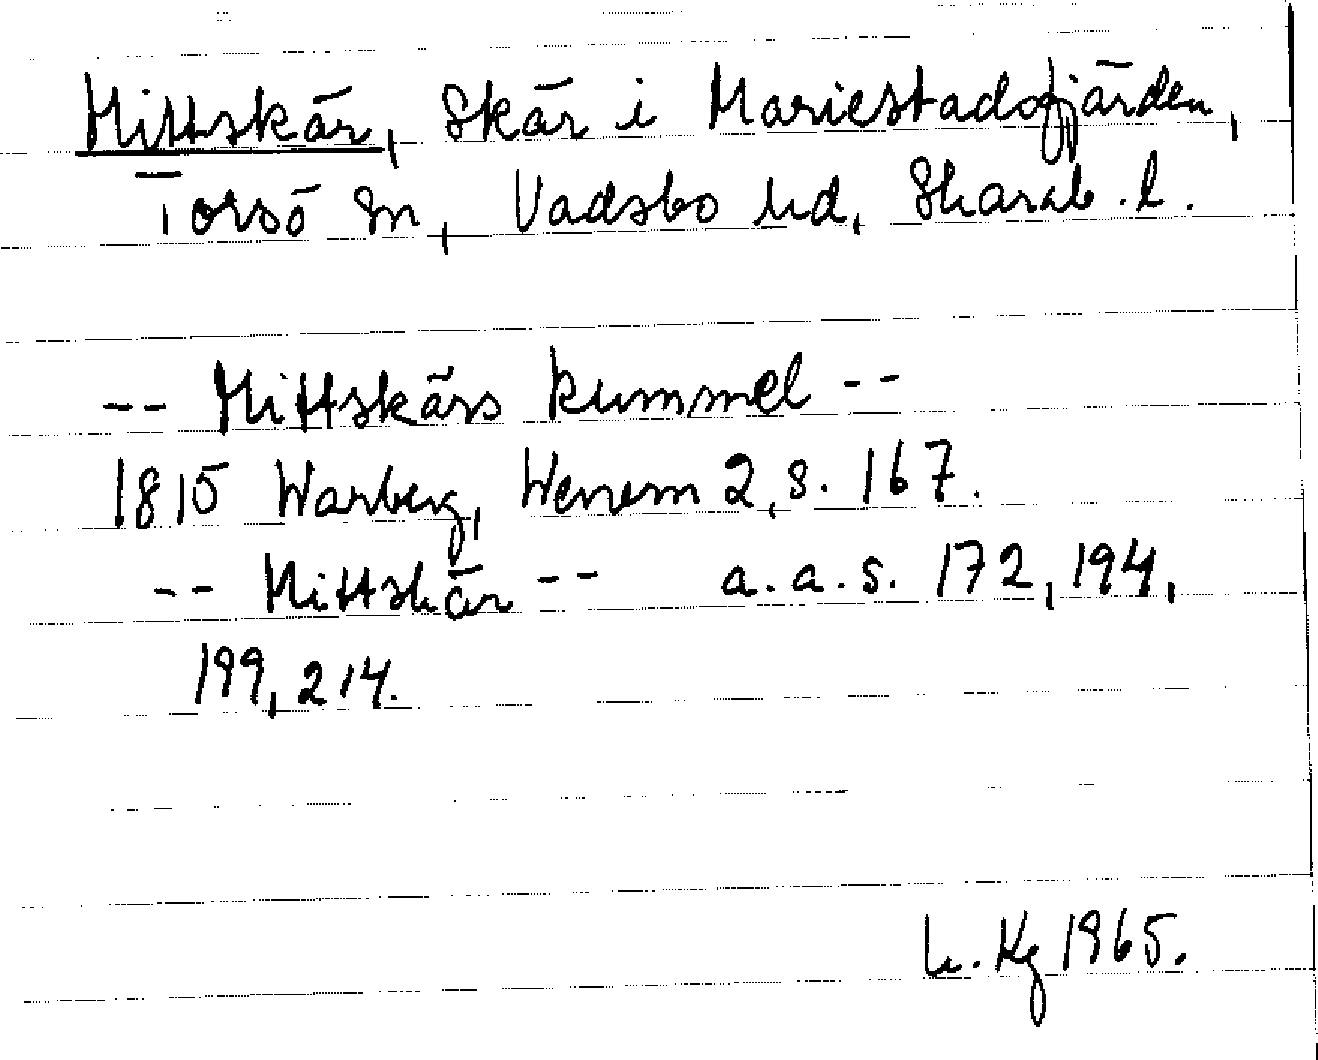 Mittskär, Skär i Mariestadsfjärden,
Torsö sn, Vadsbo hd, Skarab. l.
-- Mittskärs kummel --
1815 Warberg, Wenern 2, s. 167.
-- Mittskär -- a.a.s. 172, 194,
199, 214.
Kg 1965.